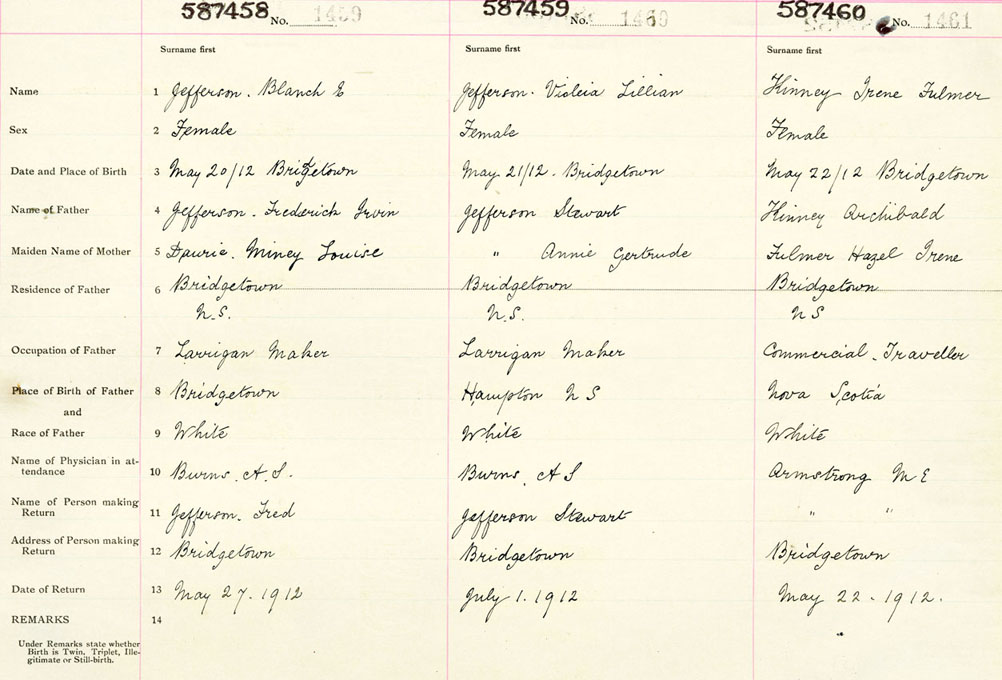 587458 No. 1459 587459 No. 1460 587460 No. 1461
Surname first Surname first Surname first
Name 1 Jefferson. Blanch E Jefferson. Violeia Lillian Kinney Irene Fulmer
Sex 2 Female Female Female
Date and Place of Birth 3 May 20/12 Bridgetown May 21/12. Bridgetown May 22/12 Bridgetown
Name of Father 4 Jefferson. Frederick Irvin Jefferson Stewart Kinney Archibald
Maiden Name of Mother 5 Miney Louise " Annie Gertrude Fulmer Hazel Irene
Residence of Father 6 Bridgetown Bridgetown Bridgetown
N.S. N.S. NS
Occupation of Father 7 Larrigan Maker Larrigan Maker Commercial Traveller
Place of Birth of Father 8 Bridgetown Hampton NS Nova Scotia
and
Race of Father 9 White White White
Name of Physician in at-
tendance 10 Burns. A. S. Burns. A S Armstrong M E
Name of Person making
Return 11 Jefferson. Fred Jefferson Stewart " "
Address of Person making
Return 12 Bridgetown Bridgetown Bridgetown
Date of Return 13 May 27. 1912 July 1. 1912 May 22 - 1912.
REMARKS 14
Under Remarks state whether
Birth is Twin, Triplet, Ille-
gitimate or Still-birth.